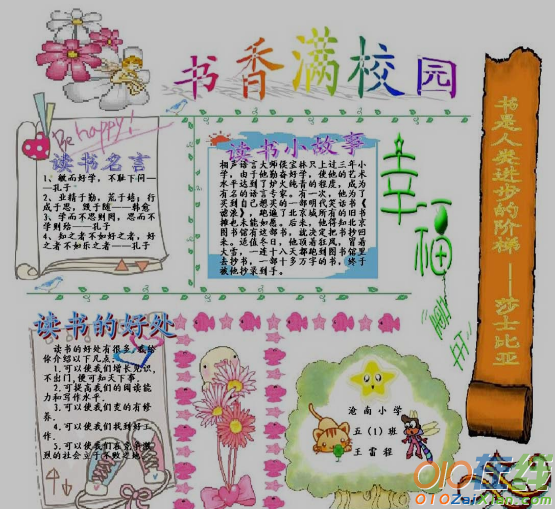 书香满校园
Be happy!
读书名言
1、敏而好学,不耻下问——孔子
2、业精于勤,荒于嬉;行成于思,毁于随——韩愈
3、学而不思则罔,思而不学则殆——孔子
4、知之者不如好之者,好之者不如乐之者——孔子
读书小故事
相声语言大师侯宝林只上过三年小
学,由于他勤奋好学,使他的艺术
水平达到了炉火纯青的程度,成为
有名的语言专家。有一次,他为了
买到自己想买的一部明代笑话书《
谑浪》,跑遍了北京城所有的旧书
摊也未能如愿。后来,他得知北京
图书馆有这部书,就决定把书抄回
来。适值冬日,他顶着狂风,冒着
大雪,一连十八天都跑到图书馆里
去抄书,一部十多万字的书,终于
被他抄录到手。
幸福
书是人类进步的阶梯——莎士比亚
读书的好处
读书的好处有很多,我给
你介绍以下几点:
1.可以使我们增长见识,
不出门,便可知天下事。
2.可提高我们的阅读能
力和写作水平。
3.可以使我们变的有修
养。
4.可以使我们找到好工
作。
5.可以使我们在竞争激
烈的社会立于不败之地。
沧南小学
五(1)班
王雷程
010在线
010ZaiXian.com